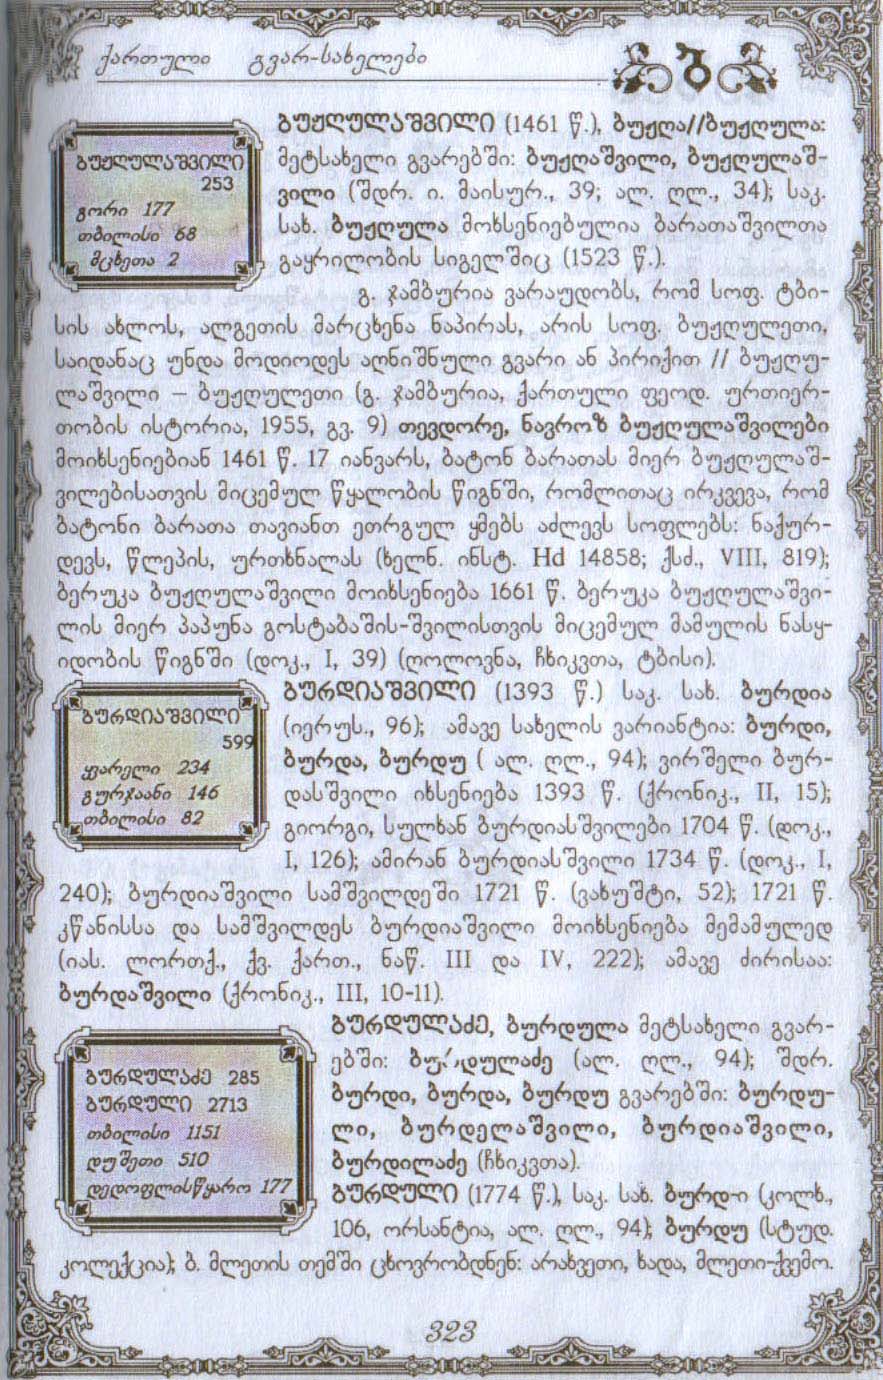 ქართული გვარ-სახელები
ბ
ბუჟღულაშვილი
253
გორი 177
თბილისი 68
მცხეთა 2
ბუჟღულაშვილი (1461 წ.), ბუჟღა//ბუჟღულა:
მეტსახელი გვარებში: ბუჟღაშვილი, ბუჟღულაშ-
ვილი (შდრ. ი. მაისურ., 39; ალ. ღლ., 34); საკ.
სახ. ბუჟღულა მოხსენიებულია ბარათაშვილთა
გაყრილობის სიგელშიც (1523 წ.).
გ. ჯამბურია ვარაუდობს, რომ სოფ. ტბი-
სის ახლოს, ალგეთის მარცხენა ნაპირას, არის სოფ. ბუჟღულეთი,
საიდანაც უნდა მოდიოდეს აღნიშნული გვარი ან პირიქით // ბუჟღუ-
ლაშვილი – ბუჟღულეთი (გ. ჯამბურია, ქართული ფეოდ. ურთიერ-
თობის ისტორია, 1955, გვ. 9) თევდორე, ნავროზ ბუჟღულაშვილები
მოიხსენიებიან 1461 წ. 17 იანვარს, ბატონ ბარათას მიერ ბუჟღულაშ-
ვილებისათვის მიცემულ წყალობის წიგნში, რომლითაც ირკვევა, რომ
ბატონი ბარათა თავიანთ ეორგულ ყმებს აძლევს სოფლებს: ნაქურ-
დევს, წლეპის, ურთხნალას (ხელნ. ინსტ. Hd 14858; ქსძ., VIII, 819);
ბერუკა ბუჟღულაშვილი მოიხსენიება 1661 წ. ბერუკა ბუჟღულაშვი-
ლის მიერ პაპუნა გოსტაბაშის-შვილისთვის მიცემულ მამულის ნასყ-
იდობის წიგნში (დოკ., I, 39) (ღოლოვნა, ჩხიკვთა, ტბისი).
ბურდიაშვილი
599
ყვარელი 234
გურჯაანი 146
თბილისი 82
ბურდიაშვილი (1393 წ.) საკ. სახ. ბურდია
(იერუს., 96); ამავე სახელის ვარიანტია: ბურდი,
ბურდა, ბურდუ ( ალ. ღლ., 94); ვირშელი ბურ-
დასშვილი იხსენიება 1393 წ. (ქრონიკ., II, 15);
გიორგი, სულხან ბურდიასშვილები 1704 წ. (დოკ.,
I, 126); ამირან ბურდიასშვილი 1734 წ. (დოკ., I,
240); ბურდიაშვილი სამშვილდეში 1721 წ. (ვახუშტი, 52); 1721 წ.
კწანისსა და სამშვილდეს ბურდიაშვილი მოიხსენიება მემამულედ
(იას. ლორთქ., ქვ. ქართ., ნაწ. III და IV, 222); ამავე ძირისაა:
ბურდაშვილი (ქრონიკ., III, 10-11).
ბურდულაძე 285
ბურდული 2713
თბილისი 1151
დუშეთი 510
დედოფლისწყარო 177
ბურდულაძე, ბურდულა მეტსახელი გვარ-
ებში: ბურდულაძე (ალ. ღლ., 94); შდრ.
ბურდი, ბურდა, ბურდუ გვარებში: ბურდუ-
ლი, ბურდელაშვილი, ბურდიაშვილი,
ბურდილაძე (ჩხიკვთა).
ბურდული (1774 წ.), საკ. სახ. ბურდ-ი (კოლხ.,
106, ორსანტია, ალ. ღლ., 94); ბურდუ (სტუდ.
კოლექცია); ბ. მლეთის თემში ცხოვრობდნენ: არახვეთი, ხადა, მლეთი-ქვემო.
323